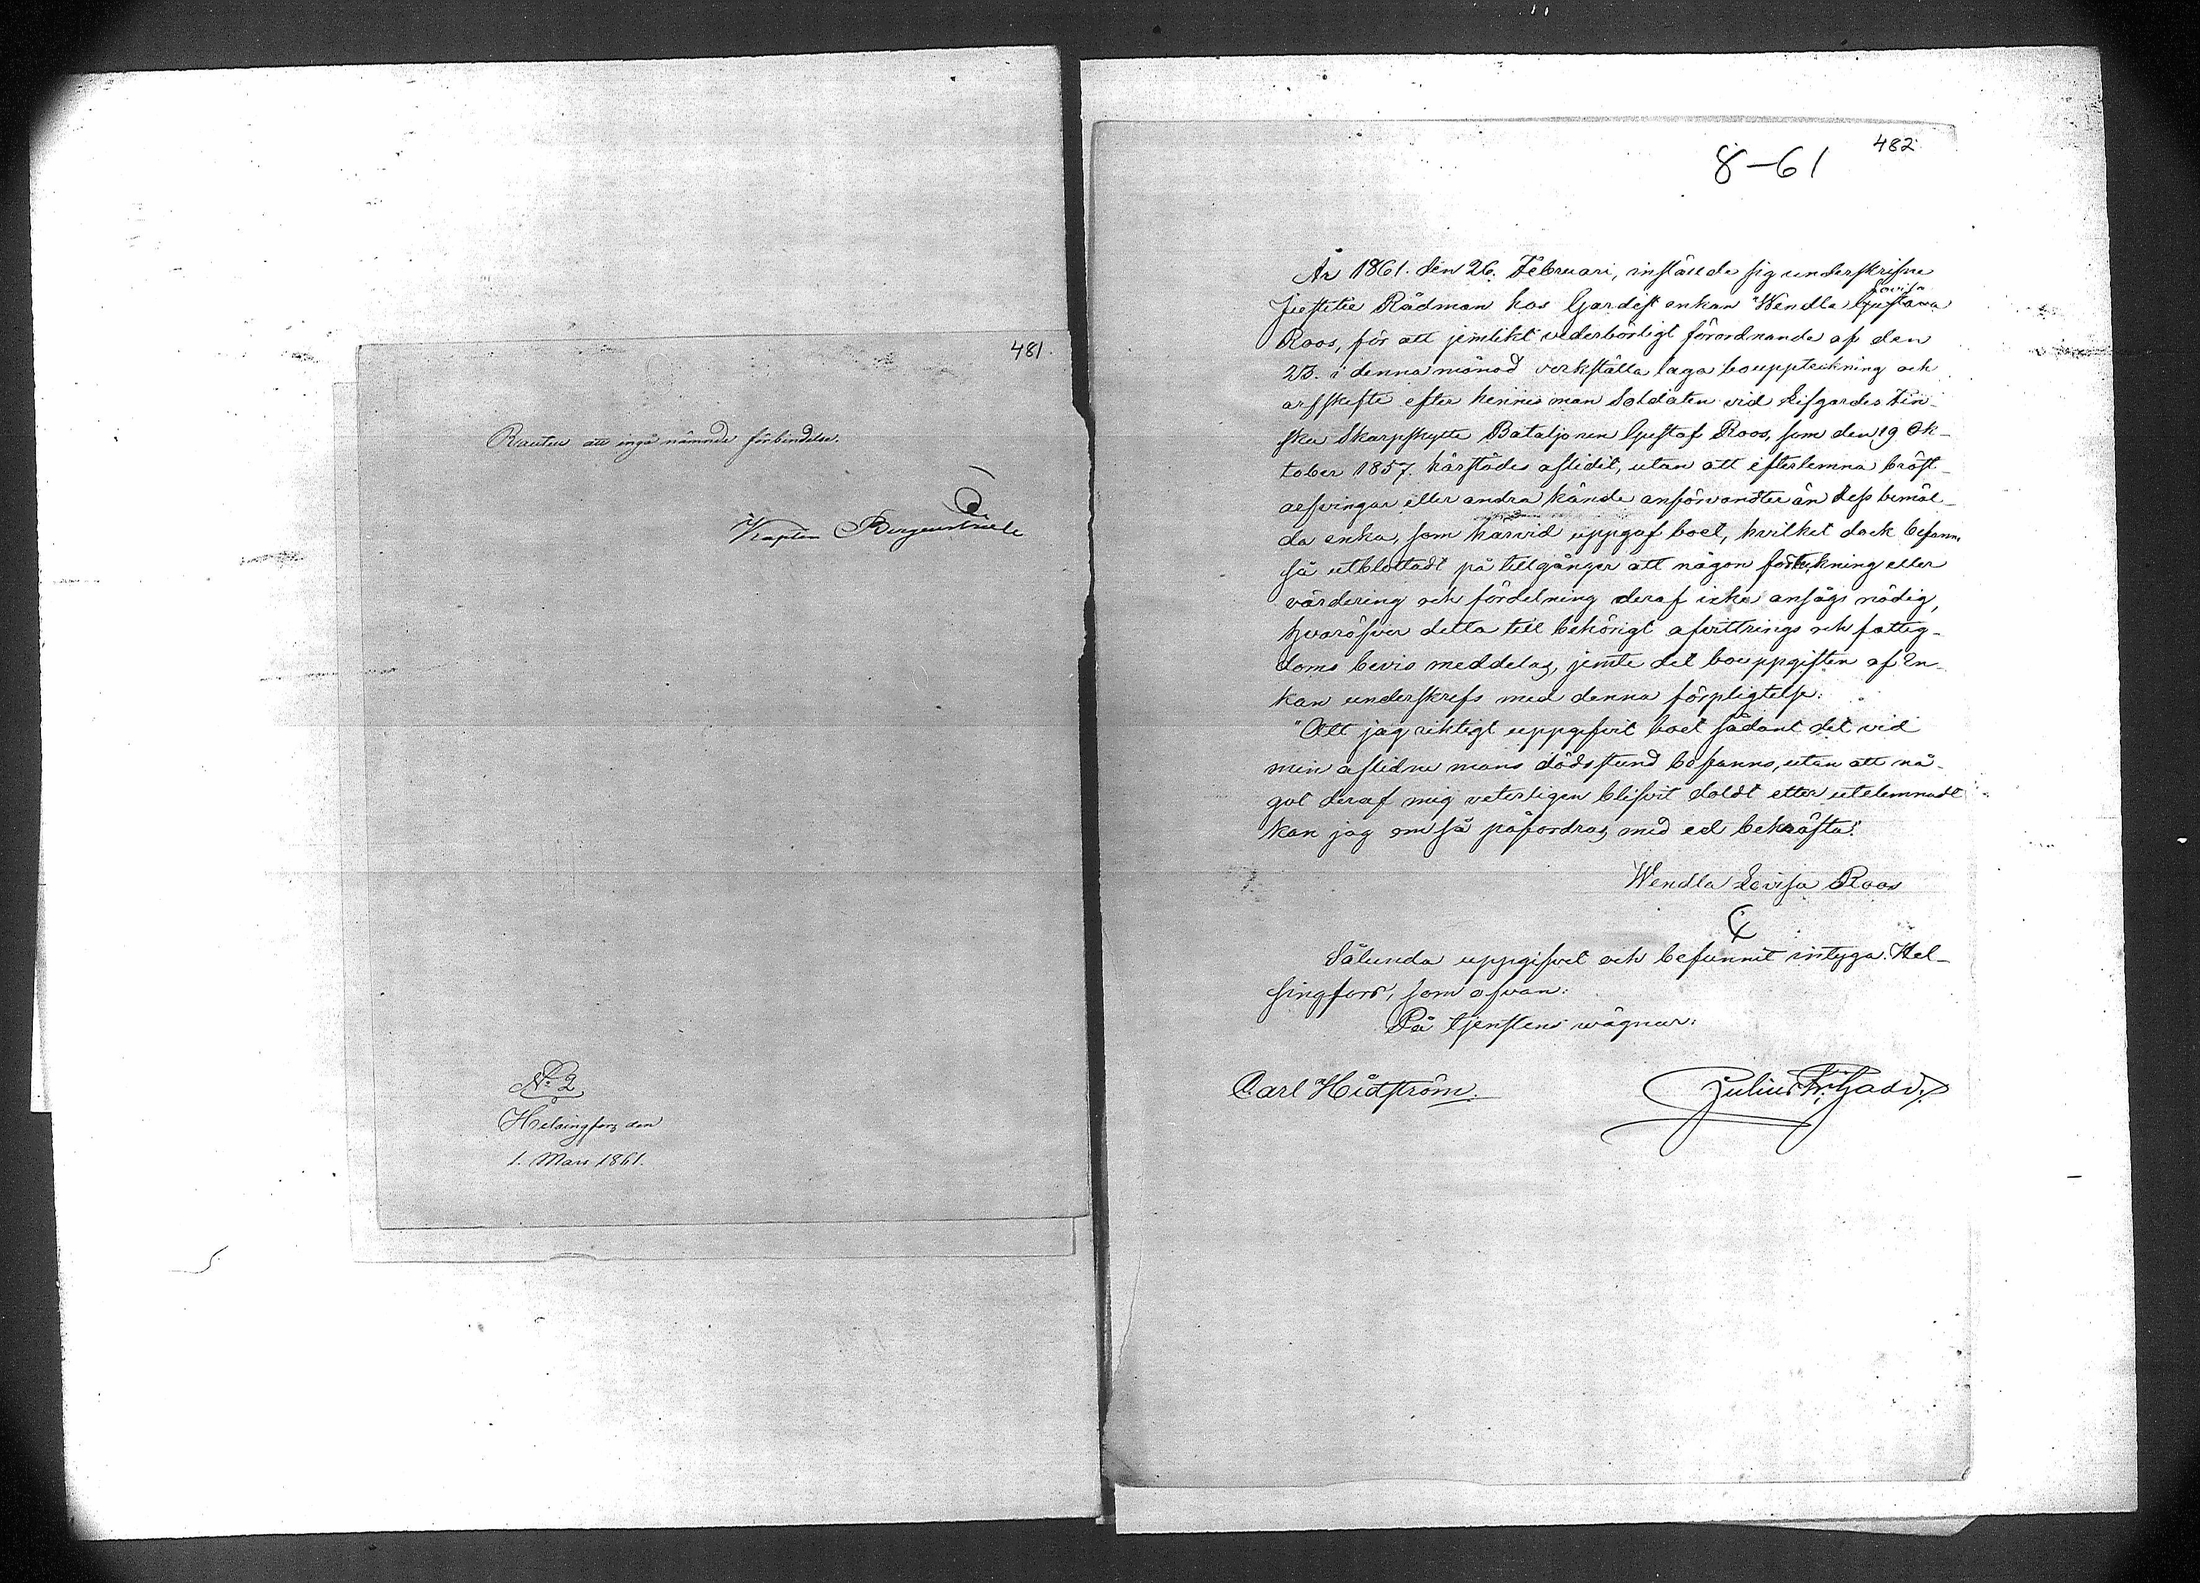 481.
Rautu att ingå nämnde förbindelse.
Kapten Bergenstråle
No 2
Helsingfors den
1. Mars 1861.
482
8-61
År 1861. den 26. Februari, instälde sig underskrifne
Justitie Rådman hos Gardist enkan Wendla Gustava
Lovisa
Roos, för att jemlikt vederbörligt förordnande af den
23. i denna månad verkställa laga bouppteckning och
arfskifte efter hennes man Soldaten vid Lifgardes Fin-
ska Skarpskytte Bataljonen Gustaf Roos, som den 19 Ok-
tober 1857. härstädes aflidit, utan att efterlemna bröst-
arfvingar eller andra kände anförvandter än dess bemäl-
da enka, som härvid uppgaf boet, hvilket dock befanns
så utblottadt på tillgångar att någon förtekning eller
värdering och fördelning deraf icke ansågs nödig,
hvaröfver detta till behörigt afvittrings och fattig-
doms bevis meddelas, jemte det bouppgiften af En-
kan underskrefs med denna förpligtelse:
"Att jag riktigt uppgifvit boet sådant det vid
min aflidne mans dödsstund befanns, utan att nå-
got deraf mig veterligen blifvit doldt eller utelemnadt
kan jag om så påfordras, med ed bekräfta."
Wendla Lovisa Roos
Sålunda uppgifvet och befunnit intyga. Hel-
singfors, som ofvan:
På tjenstens wägnar:
Carl Hidström.
Julius Fr. Gadd.